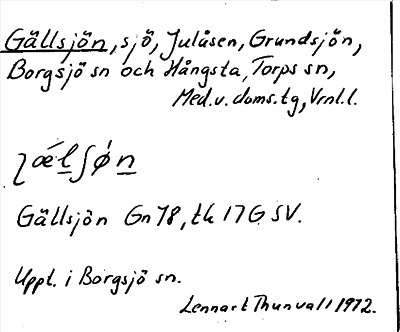 Gällsjön, sjö, Julåsen, Grundsjön,
Borgsjö sn och Hångsta, Torps sn,
Med. v. doms. tg, Vrnl. l.
ʅǽl̲ʃǿn̲
Gällsjön Gn 78, tk 17G SV.
Uppt. i Borgsjö sn.
Lennart Thunvall 1972.